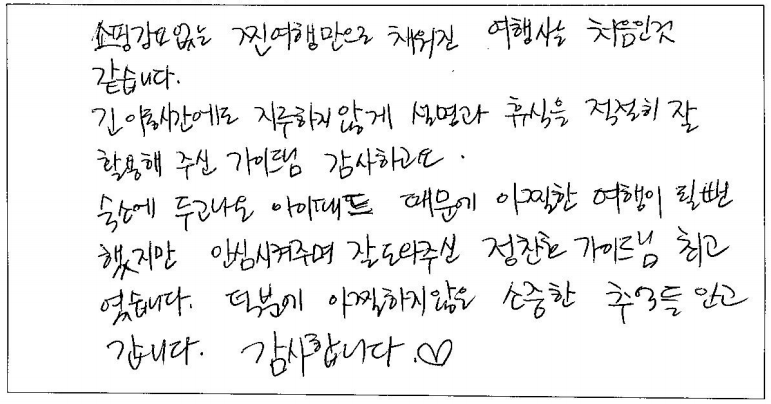 쇼핑강요없는 찐여행만으로 채워진 여행사는 처음인것
같습니다.
긴 이동시간에도 지루하지않게 설명과 휴식을 적절히 잘
활용해 주신 가이드님 감사하고요.
숙소에 두고나온 아이패드 때문에 아찔한 여행이 될뻔
했지만 안심시켜주며 잘도와주신 정찬호 가이드님 최고
였습니다. 덕분에 아찔하지않은 소중한 추억들 안고
갑니다. 감사합니다.♡